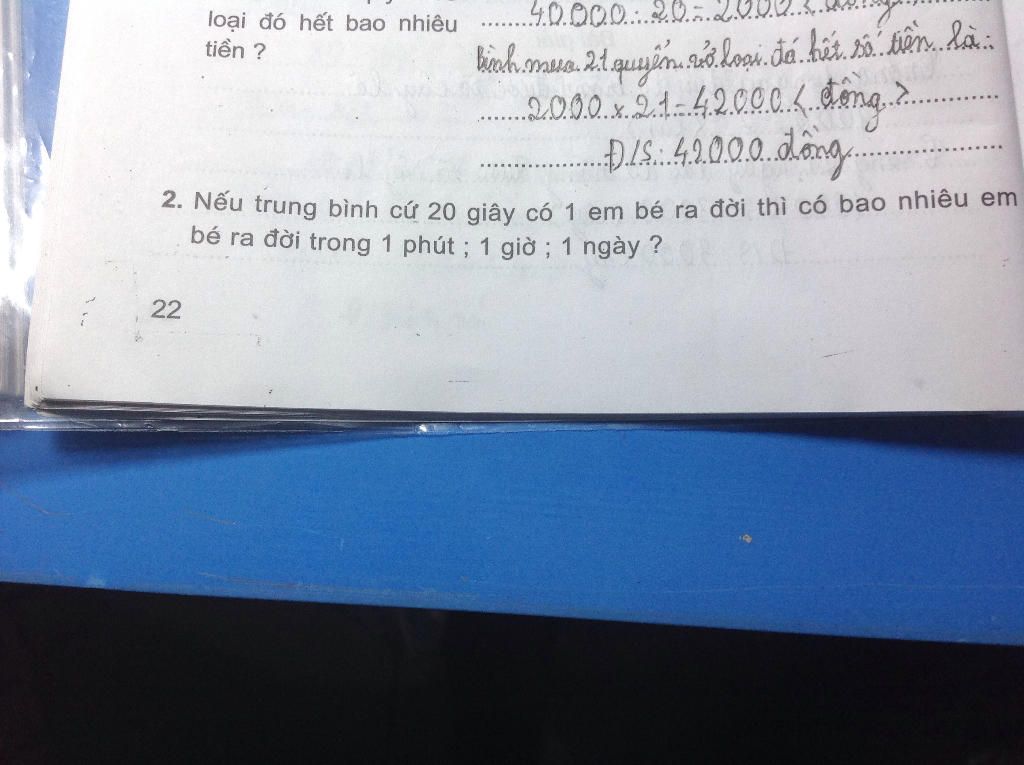 loại đó hết bao nhiêu
tiền ?
40.000 : 20 = 2000 <
Bình mua 21 quyển vở loại đó hết số tiền là:
2000 x 21 = 42000 < đồng >
Đ/S: 42000 đồng
2. Nếu trung bình cứ 20 giây có 1 em bé ra đời thì có bao nhiêu em
bé ra đời trong 1 phút ; 1 giờ ; 1 ngày ?
22